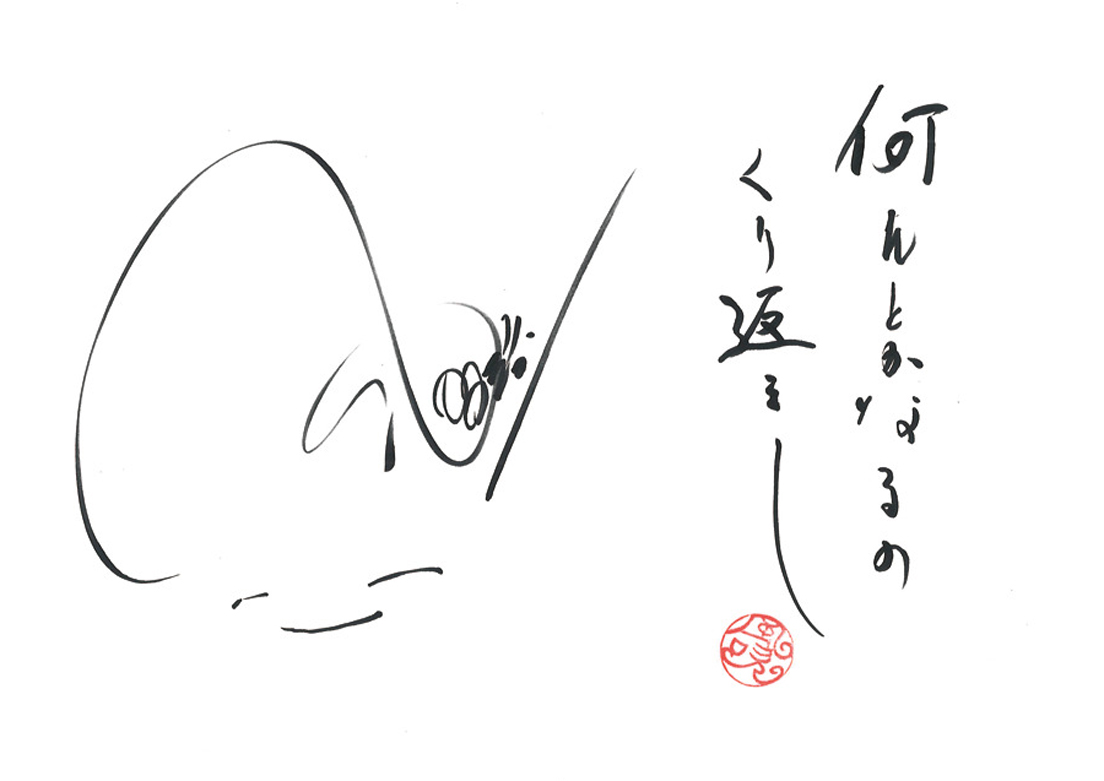 何んとかなるの
くり返えし